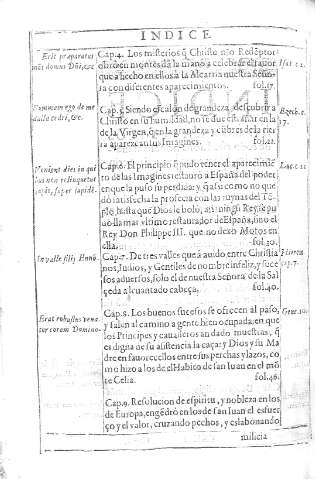 INDICE
Erit præparatus
mõs domus Dñi, &c.
Cap. 4. Los misterios q̃ Christo nr̃o Redẽptor
obró en montes dá la mano a celebrar el fauor
que a hecho en ellos à la Alcarria nuestra Seño-
ra con diferentes aparecimientos. fol. 17.
Isai. c. 2.
Summam ego de me
dulla cedri, &c.
Cap. 5. Siendo escalon de grandeza, descubrir a
Christo en su humildad, no se due estrañar en la
de la Virgen, q̃ en la grandeza y cũbres de la tier
ra aparezcan sus Imagines. fol. 21.
Ezech. c.
17.
Venient dies in qui
bus non relinquetur
lapis, super lapidẽ.
Cap. 6. El principio q̃ pudo tener el aparecimiẽ
to de las Imagines restauró a España del poder,
en que la puso su perdida: y q̃ assi como no que
dó satisfecha la profecia con las ruynas del Tẽ-
plo, hasta que Dios le boló, assi ningũ Rey se pu
do llamar vltimo restaurador de España, sino el
Rey Don Philippe III. que no dexó Moros en
ella. fol. 30.
Luc. c. 21.
In valle filij Ennõ.
Cap. 7. De tres valles que à auido entre Christia
nos, Iudios, y Gentiles de nombre infeliz, y suce
sos aduersos, solo el de nuestra Señora de la Sal
çeda a leuantado cabeça. fol. 40.
Hierem.
cap. 7.
Erat robustus vena
tor coram Domino.
Cap. 8. Los buenos sucesos se ofrecen al paso,
y salen al camino a gente bien ocupada: en que
los Principes y caualleros an dado muestras, q̃
es digna de su asistencia la caça: y Dios y su Ma
dre en fauorecellos entre sus perchas y lazos, co
mo hizo a los de el Habito de san Iuan en el mõ
te Celia. fol. 46.
Gene. 10.
Cap. 9. Resolucion de espiritu, y nobleza en los
de Europa, engẽdró en los de san Iuan el esfuer
ço y el valor, cruzando pechos, y eslabonando
milicia